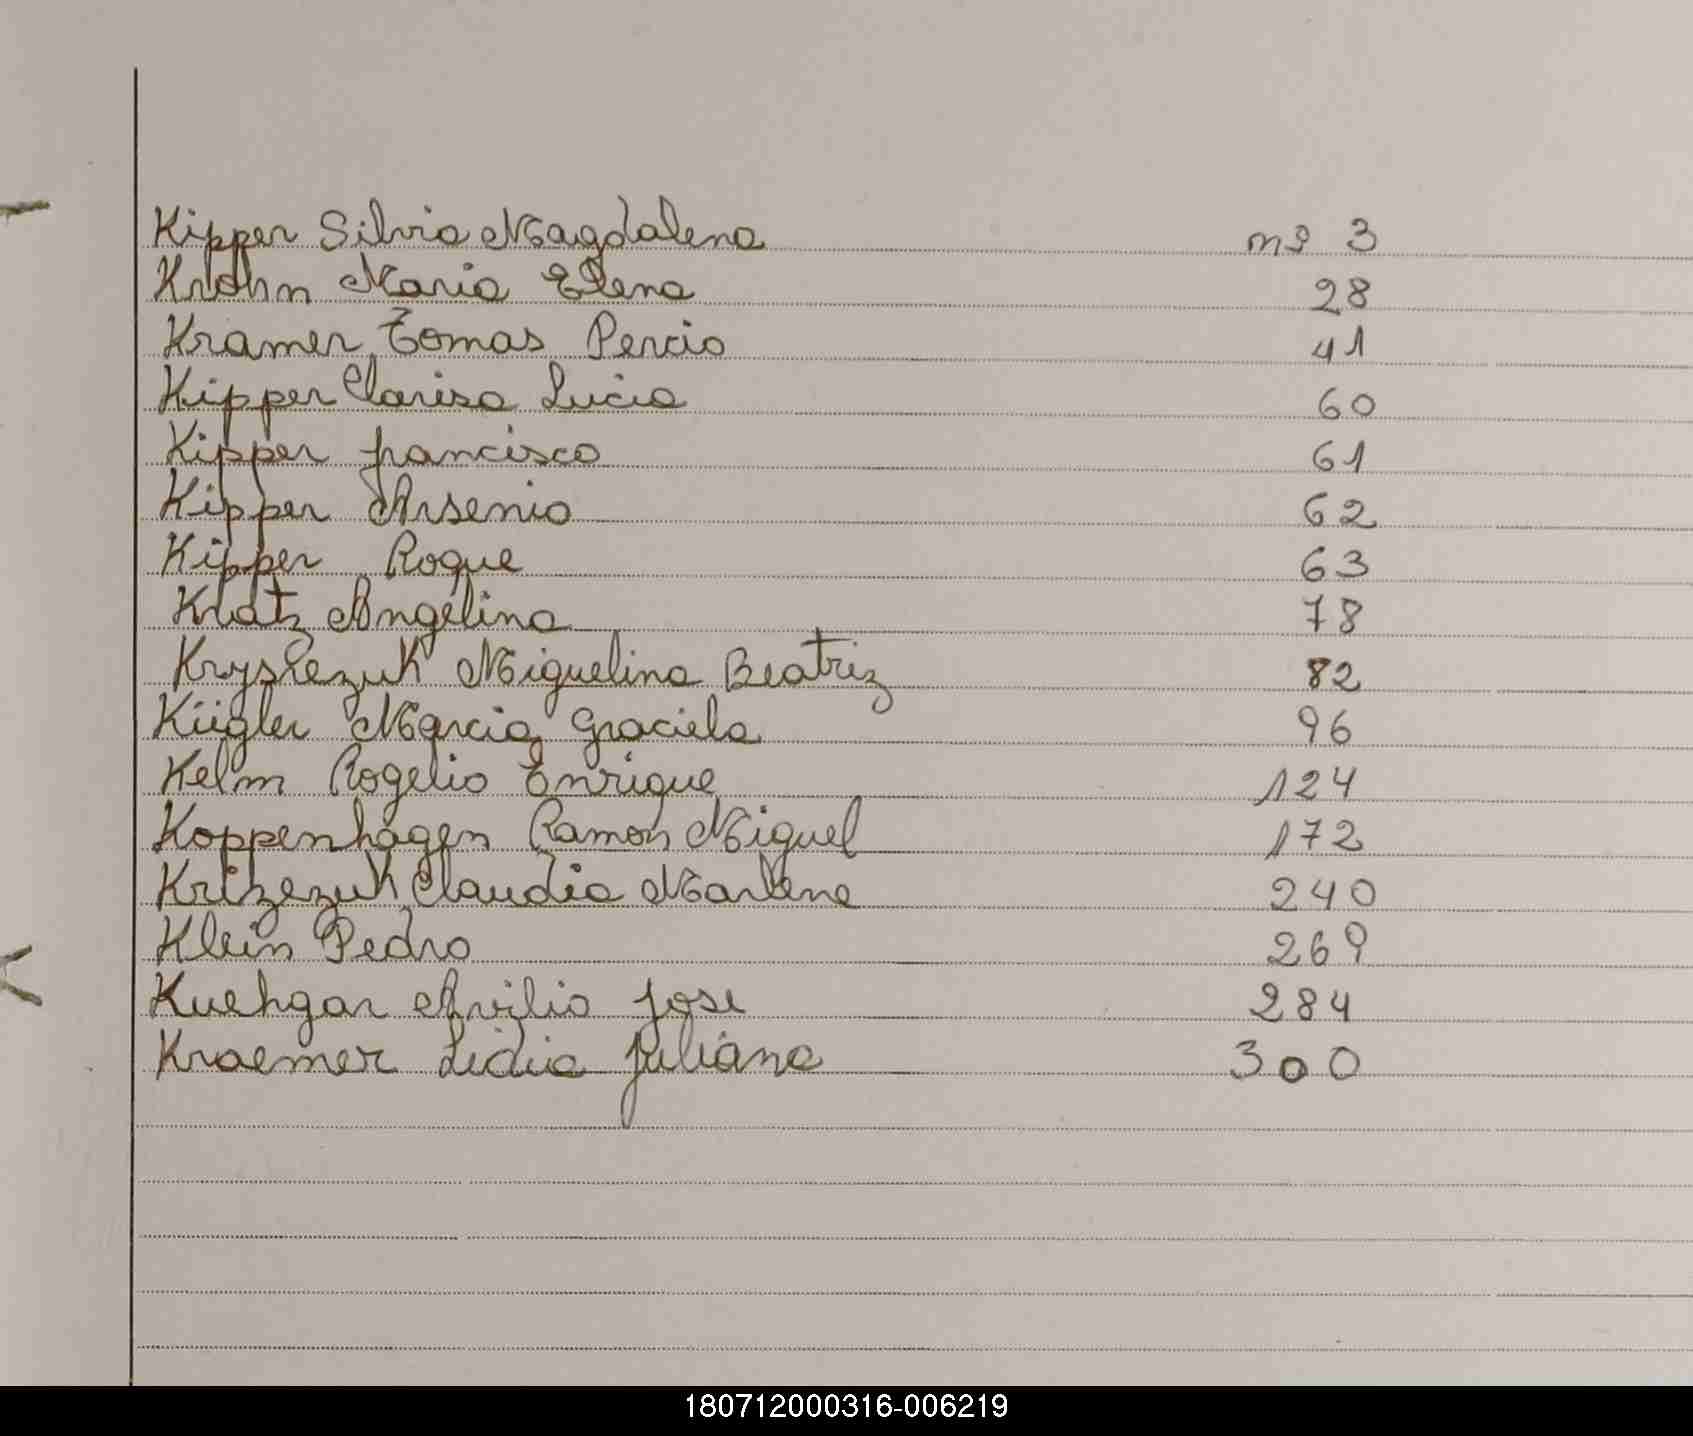 Kipper Silvia Magdalena nº 3
Krohn Maria Elena 28
Kramer Tomas Percio 41
Kipper Clarisa Lucia 60
Kipper francisco 61
Kipper Arsenio 62
Kipper Roque 63
Kratz Angelina 78
Miguelina Beatriz 82
Kügler Marcia Graciela 96
Kelm Rogelio Enrique 124
Koppenhagen Ramon Miguel 172
Krizezuk Claudia Marlene 240
Klein Pedro 269
Kuehgar Arvilio jose 284
Kraemer Lidia Juliana 300
180712000316-006219